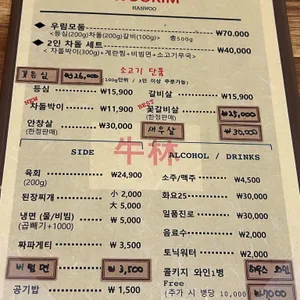 HANWOO
◆ 우림모둠 ₩70,000
<등심(200g)차돌(200g)갈비(100g)> 총500g
◆ 2인 차돌 세트 ₩40,000
< 차돌박이(300g)+계란찜+비빔면+소고기무국>
소고기 단품
(100g단위 / 3인 이상 주문가능)
₩26,000
등심 ₩15,900
갈비살 ₩15,900
NEW 차돌박이 ₩11,900
BEST 꽃갈비살 ₩25,000
(한정판매)
안창살 ₩30,000
(한정판매)
새우살 ₩30,000
牛林
SIDE
ALCOHOL / DRINKS
육회 ₩24,900
(200g)
된장찌개 小 2,000
大 5,000
냉면 (물/비빔) ₩ 5,000
(곱빼기+1000)
짜파게티 ₩ 3,500
비빔면 ₩ 3,500
공기밥 ₩ 1,500
소주/맥주 ₩ 4,500
화요25 ₩30,000
일품진로 ₩30,000
음료수 ₩ 2,000
토닉워터 ₩ 2,000
콜키지 와인1병
Free
(추가 시 병당 10,000)
하우스 와인
₩7000